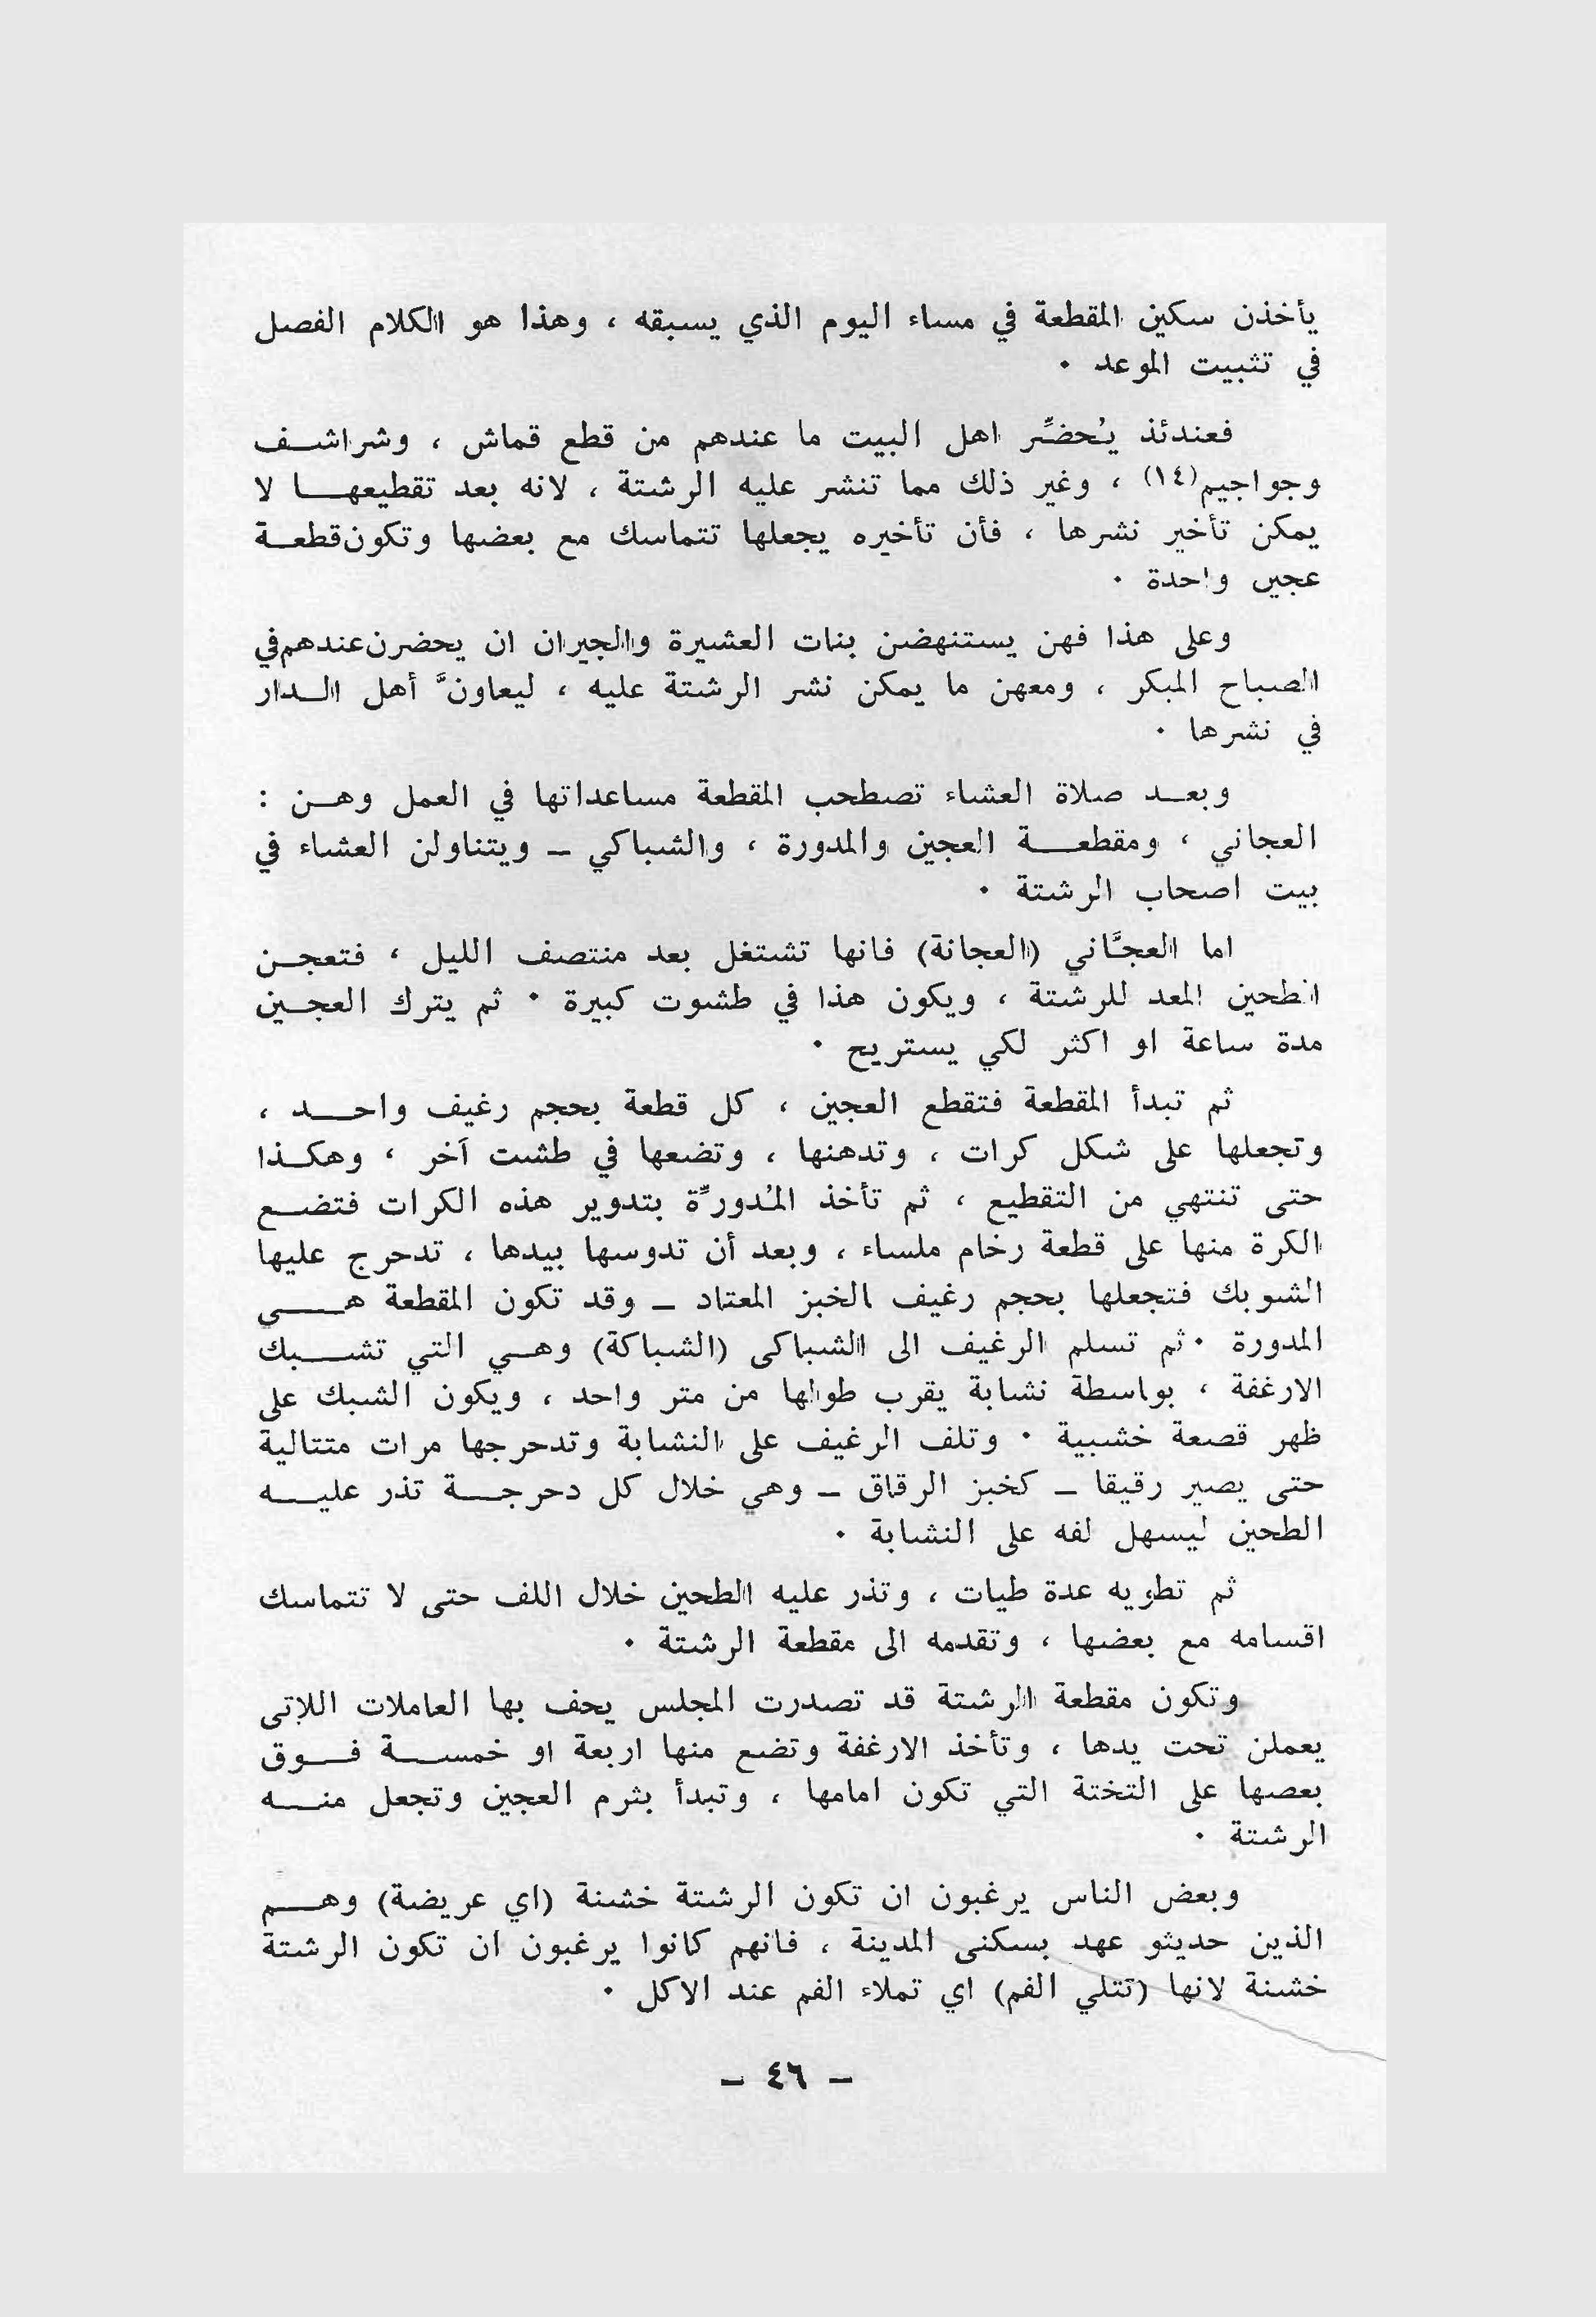 يأخذن سكين المقطعة في مساء اليوم الذي يسبقه ، وهذا هو الكلام الفصل
في تثبيت الموعد ٠
فعندئذ يُحضِّر اهل البيت ما عندهم من قطع قماش ، وشراشـف
وجواجيم(١٤) ، وغير ذلك مما تنشر عليه الرشتة ، لانه بعد تقطيعهـا لا
يمكن تأخير نشرها ، فأن تأخيره يجعلها تتماسك مع بعضها وتكون قطعـة
عجين واحدة ٠
وعلى هذا فهن يستنهضن بنات العشيرة والجيران ان يحضرن عندهم في
الصباح المبكر ، ومعهن ما يمكن نشر الرشتة عليه ، ليعاونَّ أهل الـدار
في نشرها ٠
وبعـد صلاة العشاء تصطحب المقطعة مساعداتها في العمل وهـن :
العجاني ، ومقطعـة العجين والمدورة ، والشباكي ــ ويتناولن العشاء في
بيت اصحاب الرشتة ٠
اما العجَّاني (العجانة) فانها تشتغل بعد منتصف الليل ، فتعجـن
الطحين المعد للرشتة ، ويكون هذا في طشوت كبيرة ٠ ثم يترك العجـين
مدة ساعة او اكثر لكي يستريح ٠
ثم تبدأ المقطعة فتقطع العجين ، كل قطعة بحجم رغيف واحـد ،
وتجعلها على شكل كرات ، وتدهنها ، وتضعها في طشت آخر ، وهكـذا
حتى تنتهي من التقطيع ، ثم تأخذ المُدورِّة بتدوير هذه الكرات فتضـع
الكرة منها على قطعة رخام ملساء ، وبعد أن تدوسها بيدها ، تدحرج عليها
الشوبك فتجعلها بحجم رغيف الخبز المعتاد ــ وقد تكون المقطعة هـي
المدورة ٠ ثم تسلم الرغيف الى الشباكى (الشباكة) وهـي التي تشـبك
الارغفة ، بواسطة نشابة يقرب طولها من متر واحد ، ويكون الشبك على
ظهر قصعة خشبية ٠ وتلف الرغيف على النشابة وتدحرجها مرات متتالية
حتى يصير رقيقا ــ كخبز الرقاق ــ وهي خلال كل دحرجـة تذر عليـه
الطحين ليسهل لفه على النشابة ٠
ثم تطويه عدة طيات ، وتذر عليه الطحين خلال اللف حتى لا تتماسك
اقسامه مع بعضها ، وتقدمه الى مقطعة الرشتة ٠
وتكون مقطعة الرشتة قد تصدرت المجلس يحف بها العاملات اللاتى
يعملن تحت يدها ، وتأخذ الارغفة وتضع منها اربعة او خمسـة فـوق
بعصها على التختة التي تكون امامها ، وتبدأ بثرم العجين وتجعل منـه
الرشتة ٠
وبعض الناس يرغبون ان تكون الرشتة خشنة (اي عريضة) وهـم
الذين حديثو عهد بسكنى المدينة ، فانهم كانوا يرغبون ان تكون الرشتة
خشنة لانها (تتلي الفم) اي تملاء الفم عند الاكل ٠
ــ ٤٦ ــ